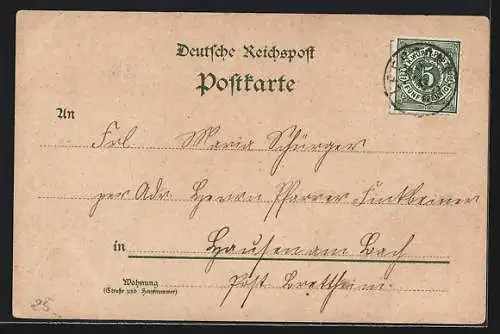 Deutsche Reichspost
Postkarte
5
An
Frl. Maria Schürger
per Adr Herrn Pfarrer Funkbeiner
in Hausen am Bach
Wohnung
(Straße und Hausnummer)
Post Brettheim.
25